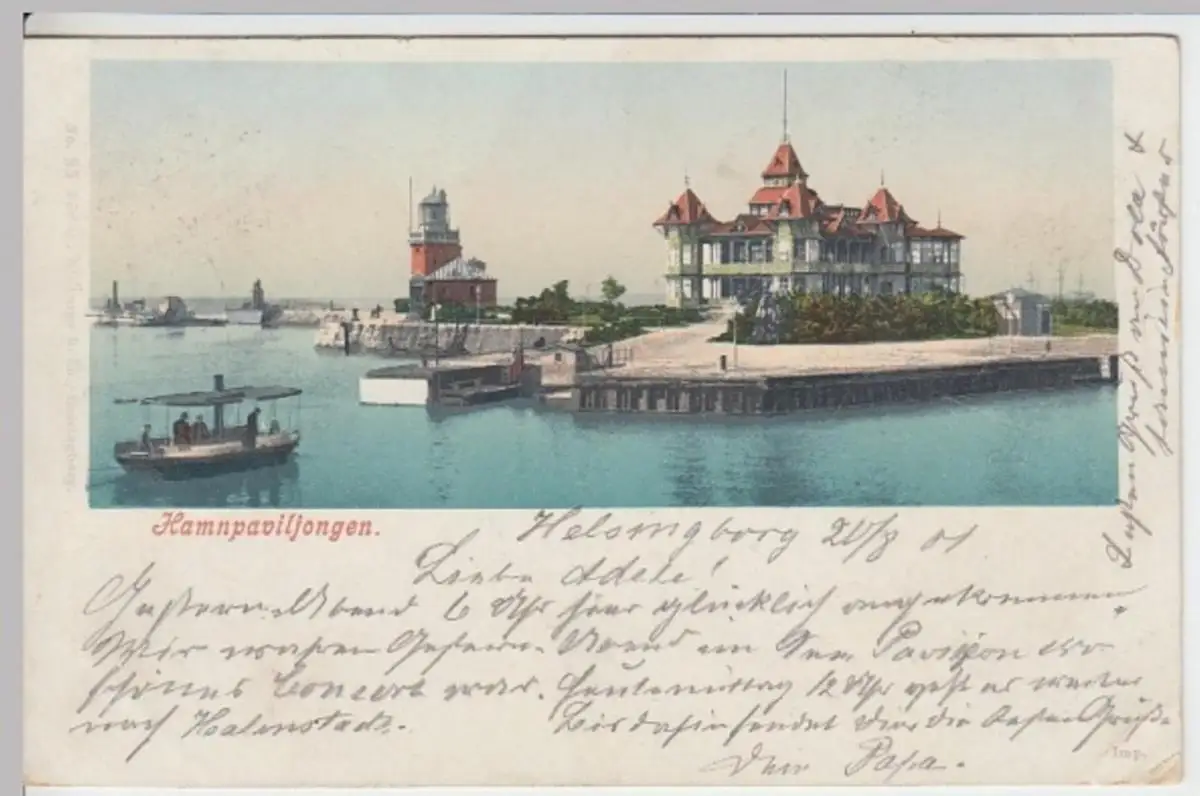 Hamnpaviljongen.
Helsingborg 20/8 01
Liebe Adele!
Gestern Abend 6 Uhr hier glücklich angekommen.
Wir waren Gestern Abend im Pavillon wo
schönes Concert war. Heute mittag 12 Uhr geht es weiter
nach Halmstadt. Bis dahin sendet Dir die besten Grüße
Dein Papa.
Besten Gruß an